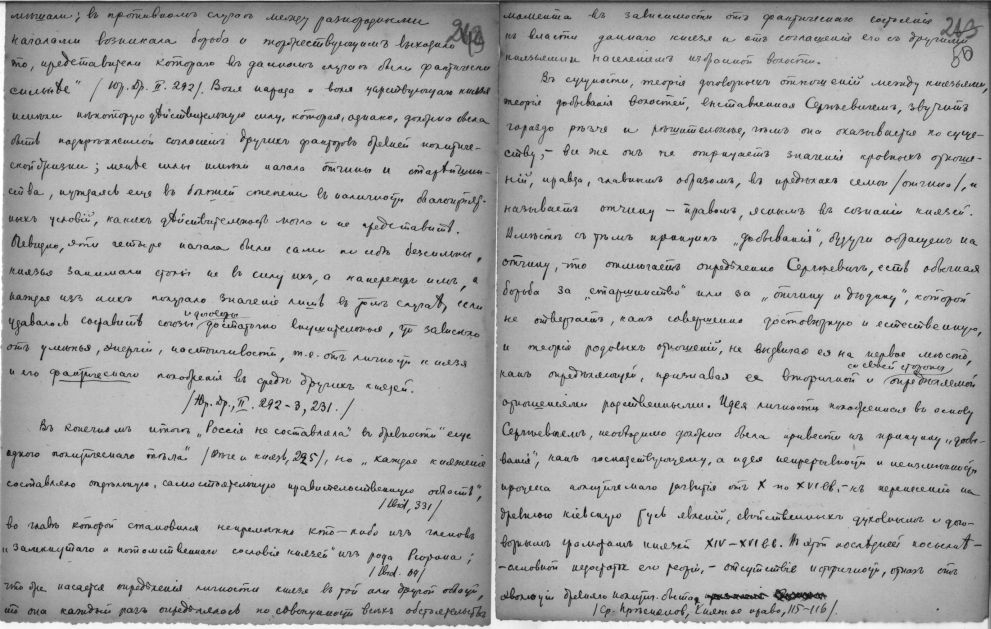 мышали; въ противномъ случаѣ между разнородными
началами возникала борьба и торжествующимъ выходило
то, представители котораго въ данномъ случаѣ были фактически
сильнѣе" /Юр. Др. II. 292/. Воля народа и воля царствующаго князя
имѣли нѣкоторую дѣйствительную силу, которая, однако, должна была
быть подкрѣпленной согласіемъ другихъ факторовъ древней политиче-
ской жизни; менѣе силы имѣли начала отчины и старѣйшин-
ства, нуждаясь еще въ большей степени въ наличности благопріят-
ныхъ условій, какихъ дѣйствительность могла и не представить.
Очевидно, эти четыре начала были сами по себѣ безсильны,
князья занимали столы не въ силу ихъ, а наперекоръ имъ, а
каждое изъ нихъ получало значеніе лишь въ томъ случаѣ, если
удавалось составить союзы и договоры достаточно внушительные, что зависѣло
отъ умѣнья, энергіи, настойчивости, т.е. отъ личности князя
и его фактическаго положенія въ средѣ другихъ князей.
/Юр. Др., II. 292-3, 231./
Въ конечномъ итогѣ „Россія не составляла" въ древности „еще
одного политическаго тѣла" /Вѣче и князь, 295/, но „каждое княженіе
составляло отдѣльную, самостоятельную правительственную область",
/Ibid, 331/
во главѣ которой становился непремѣнно кто-либо изъ членовъ
„замкнутаго и потомственнаго сословія князей" изъ рода Рюрика;
/Ibid.
что же касается опредѣленія личности князя въ той или другой области,
то она каждый разъ опредѣлялась по совокупности всѣхъ обстоятельствъ
243
50
момента въ зависимости отъ фактическаго состоянія
власти даннаго князя и отъ соглашенія его съ другими
князьями и населеніемъ избранной волости.
Въ сущности, теорія договорныхъ отношеній между князьями,
теорія добыванія волостей, выставленная Сергѣевичемъ, звучитъ
гораздо рѣзче и рѣшительнѣе, чѣмъ она оказывается по суще-
ству,- все же онъ не отрицаетъ значенія кровныхъ отноше-
ній, правда, главнымъ образомъ, въ предѣлахъ семьи /отчины/, и
называетъ отчину - правомъ, яснымъ въ сознаніи князей.
Вмѣстѣ съ тѣмъ принципъ „добыванія", будучи обращенъ на
отчину, что отмѣчаетъ опредѣленно Сергѣевичъ, есть обычная
борьба за „старшинство" или за „отчину и дѣдину", которой
не отвергаетъ, какъ совершенно достовѣрную и естественную,
и теорія родовыхъ отношеній, не выдвигая ея на первое мѣсто,
какъ опредѣляющей, признавая ее вторичной и со своей стороны опредѣляемой
отношеніями родственными. Идея личности положенная въ основу
Сергѣевичемъ, необходимо должна была привести къ принципу „добы-
ванія", какъ господствующему, а идея непрерывности и неизмѣнности
процесса политическаго развитія отъ X по XVI вв. - къ перенесенію на
древнюю кіевскую Русь явленій, свойственныхъ духовнымъ и дого-
ворнымъ грамотамъ князей XIV-XVI вв. Въ этой послѣдней посылкѣ-
-основной недостатокъ его теоріи, - отсутствіе историчности, отказъ отъ
эволюціи древняго политич. быта
/Ср. Прѣсняковъ, Княжое право, 115-116/.